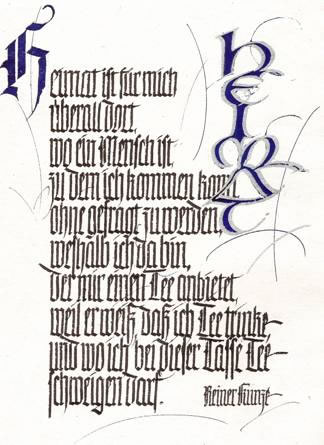 Heimat ist für mich
überall dort,
wo ein Mensch ist
zu dem ich kommen kann
ohne gefragt zu werden,
weßhalb ich da bin,
der mir einen Tee anbietet,
weil er weiß, daß ich Tee trinke
und wo ich bei dieser Tasse Tee
schweigen darf.
Reiner Kunze